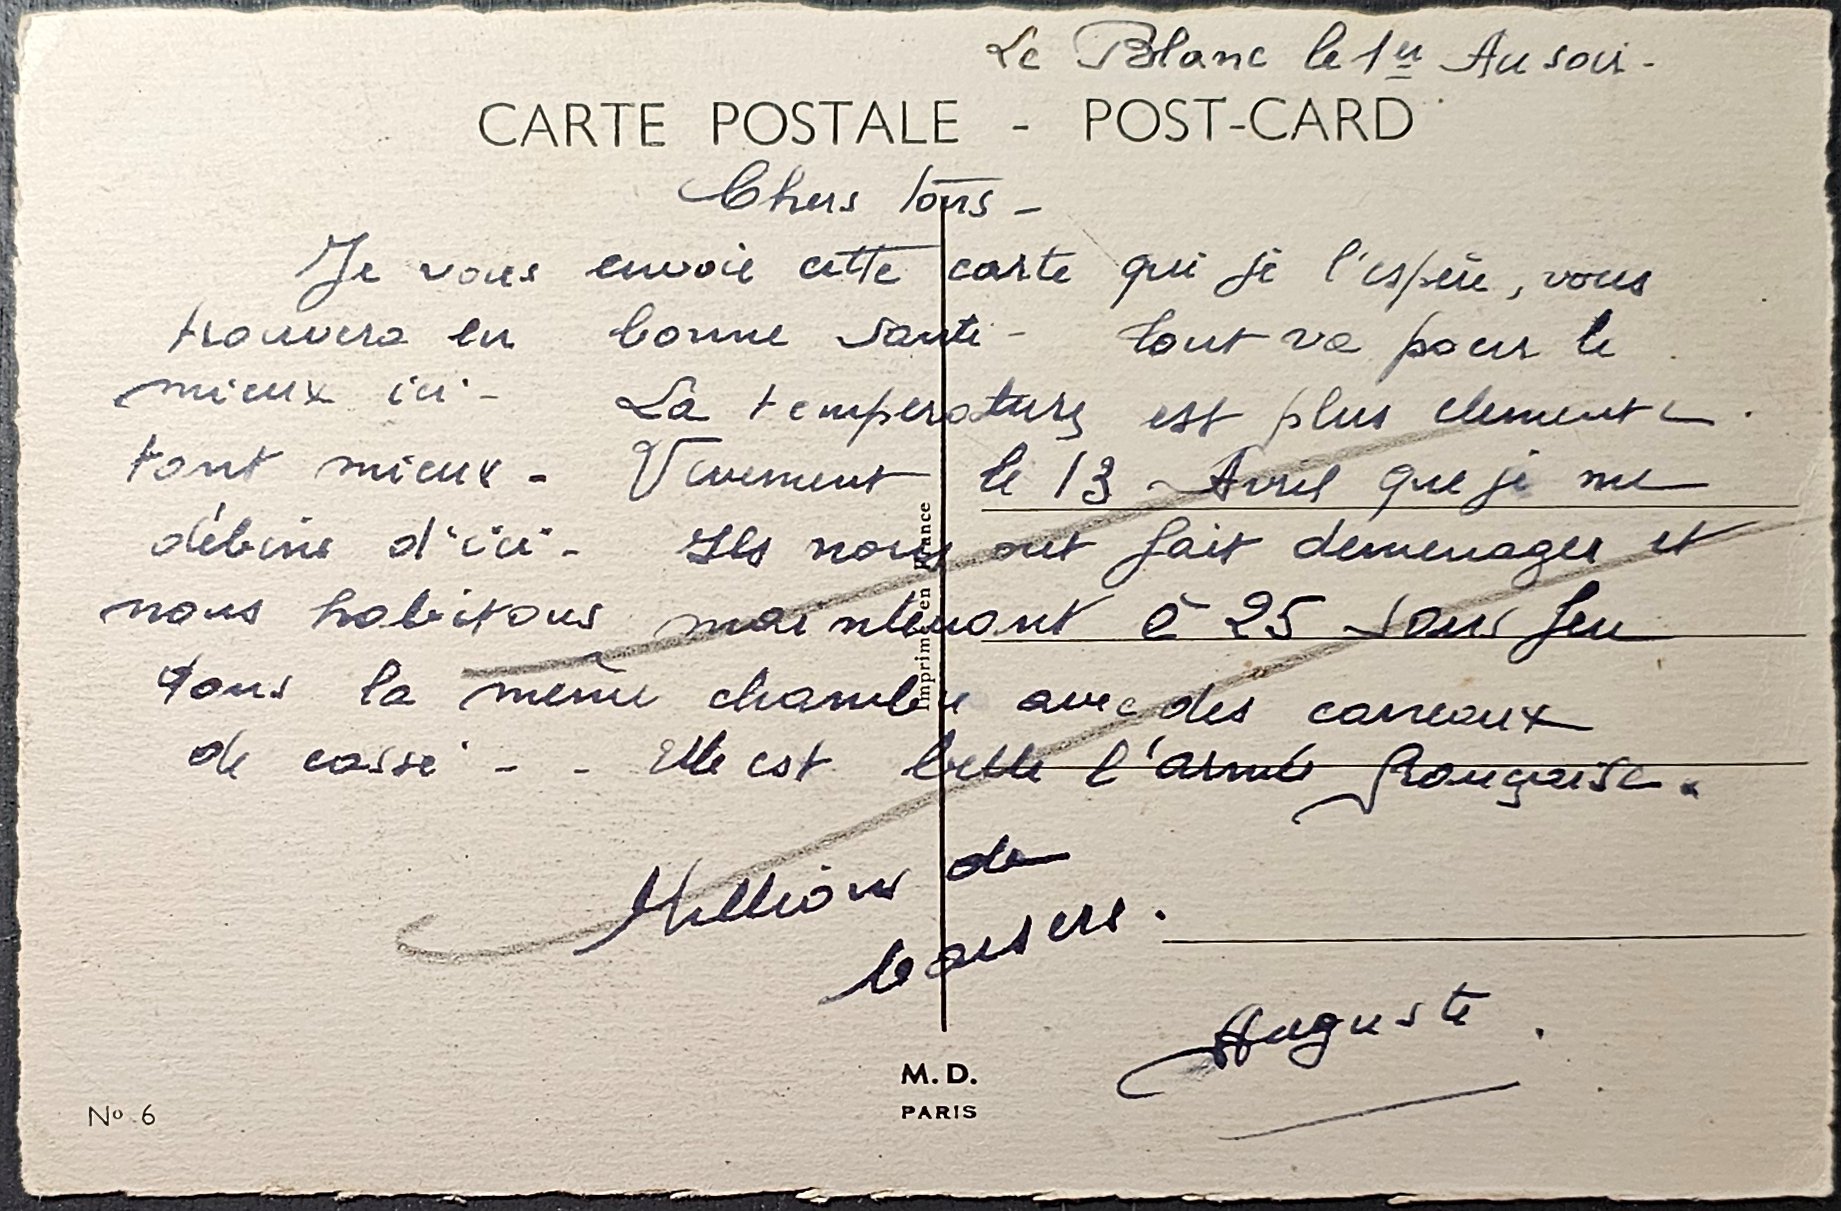 Le Blanc le 1er Au soir -
CARTE POSTALE - POST-CARD
Chers tous -
Je vous envoie cette carte qui je l'espère, vous
trouvera en bonne santé - tout va pour le
mieux ici - La temperature est plus clemente
tant mieux - Vivement le 13 Avril que je me
débine d'ici - Ils nous ont fait demenager et
nous habitons maintenant à 25 sans feu
dans la même chambre avec des carreaux
de cassé - - Elle est belle l'armée française.
Millions de
baisers.
Auguste.
Imprimé en France
M.D.
PARIS
No 6